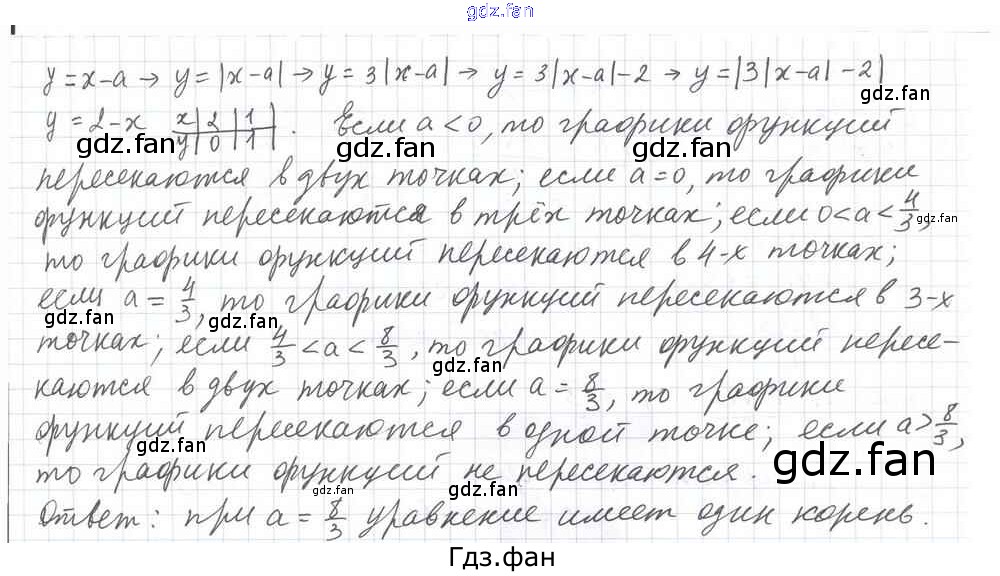 gdz.fan
y = x-a → y = |x-a| → y = 3|x-a| → y = 3|x-a|-2 → y = |3|x-a|-2|
gdz.fan
y = 2-x x|2|1| y|0|1| . Если a<0, то графики функций
gdz.fan gdz.fan gdz.fan
пересекаются в двух точках; если a=0, то графики
функций пересекаются в трёх точках; если 0<a<4/3,
gdz.fan
то графики функций пересекаются в 4-х точках;
если a = 4/3, то графики функций пересекаются в 3-х
gdz.fan gdz.fan gdz.fan
точках; если 4/3 < a < 8/3, то графики функций пересе-
каются в двух точках; если a = 8/3, то графики
функций пересекаются в одной точке; если a > 8/3,
gdz.fan gdz.fan
то графики функций не пересекаются.
gdz.fan gdz.fan
Ответ: при a = 8/3 уравнение имеет один корень.
Гдз.фан